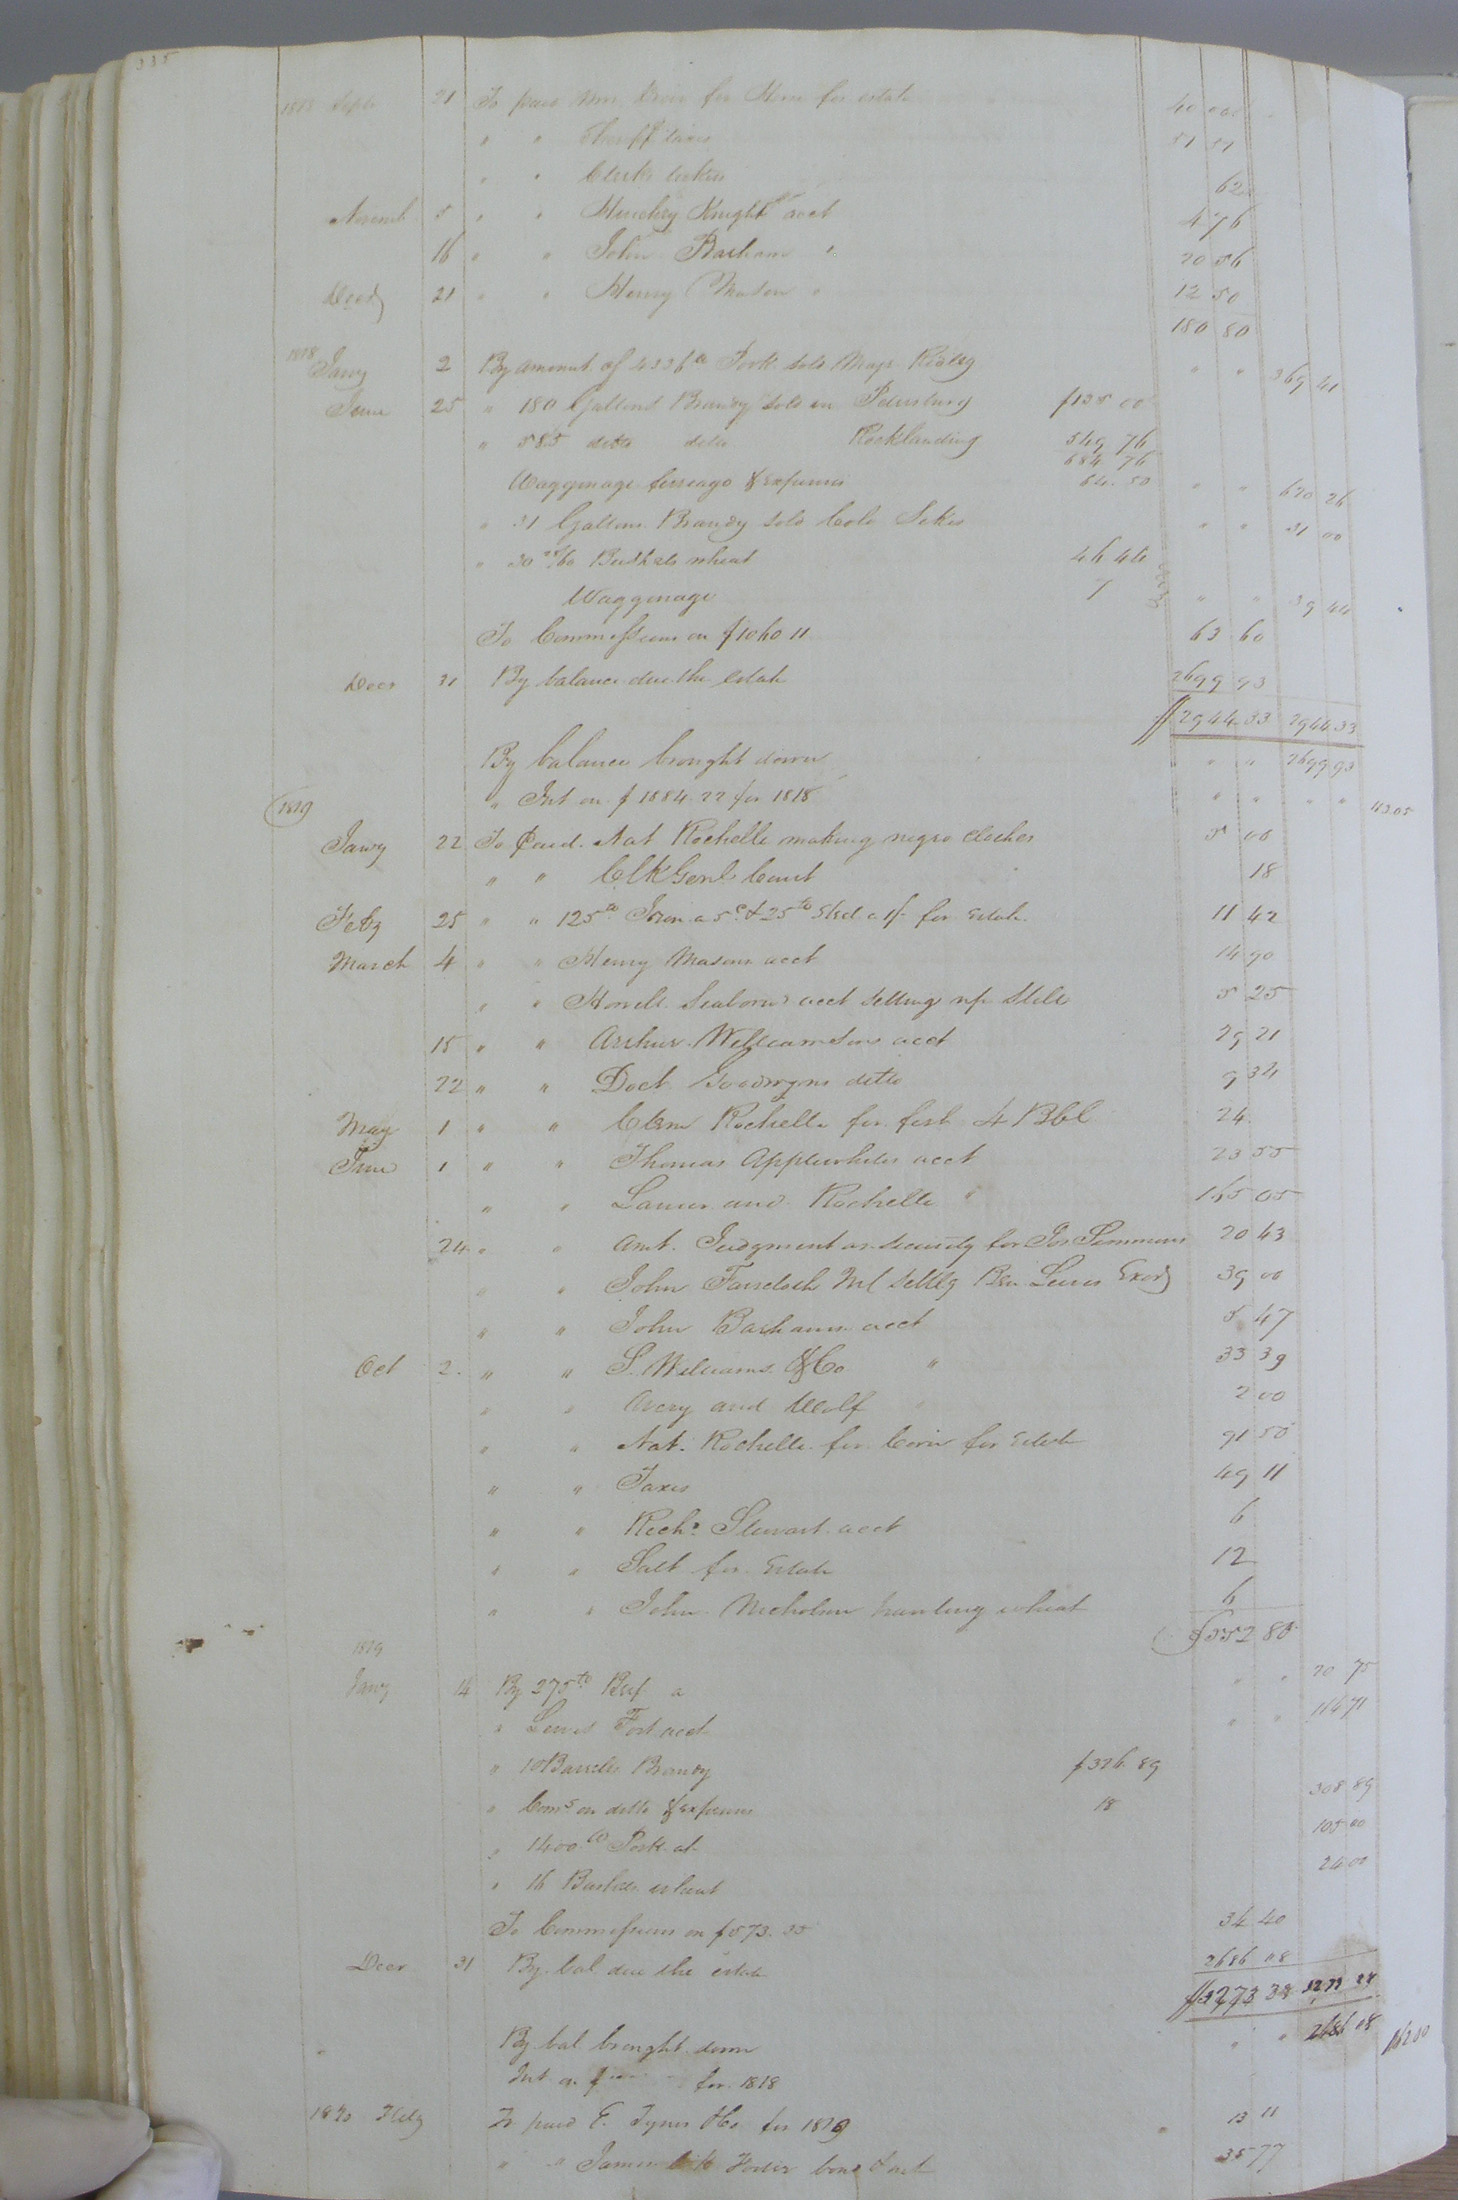 335
1818 Septr 21 To paid Wm for for estate 40 000
" " Sheriff taxes 51 51
" " Clerks tickets 62
Novemb 5 " " Hinchey Knight acct 4 76
16 " " John Barham " 20 56
Decr 21 " " Henry Mason " 12 50
180 80
1818 Jany 2 By amount of Pork sold Majr Ridley " " 369 41
June 25 " 180 Gallons Brandy sold in Petersburg $135 00
" 585 ditto ditto Rocklanding 549 76
684 76
Waggonage ferreage & expenses 64.50 " " 620 26
" 31 Gallons Brandy sold Colo " " 31 00
" 30 /60 Bushels wheat 46 44
Waggonage 7 " " 39 44
To Commissions on $1060 11 63 60
Decr 31 By balance due the estate 2699 93
$2944.33 2944 33
By balance brought down " " 2699 93
" Int on $1884.22 for 1818 " " " " 113.05
1819
Jany 22 To paid Nat Rochelle making negro clothes 5 00
" " Clk Genl Court 18
Feby 25 " " 125 lb Iron a 5c & 25 lb Steel a 1/- for Estate 11 42
March 4 " " Henry Masons acct 14 90
" " Howell Seaborns acct setting up Still 5 25
15 " " Arthur Williamsons acct 29 21
22 " " Doct Goodwyns ditto 9 34
May 1 " " Clem Rochelle for fish 4 Bbl 24
June 1 " " Thomas Applewhites acct 23 55
" " Lanier and Rochelle " 165 05
24 " " Amt. Judgment as security for Jos Simmons 20 43
" " John Faircloth settlg Ben Lewis Exors 39 00
" " John Barhams acct 5 47
Oct 2. " " S. Williams & Co " 33 39
" " Avery and Wolf " 2 00
" " Nat. Rochelle for Corn for Estate 91 50
" " Taxes 49 11
" " Richd Stewart acct 6
" " Salt for Estate 12
" " John Nicholson hauling wheat 6
$552 80
1819
Jany 14 By 275 lb Beef a " " 20 75
" Lewis Fort acct " " 114 71
" 10 Barrels Brandy $326.89
" Coms on ditto & expenses 18 308 89
" 1400 lb Pork at 105 00
" 16 Bushels wheat 24 00
To Commissions on $573.35 34 40
Decr 31 By bal due the estate 2686 08
$3273 28 3273 28
By bal brought down " " 2686 08
Int on $ for 1818 16200
1820 Feby To paid E. Tyner &Co for 1819 13 11
" " James bond & int 35 77